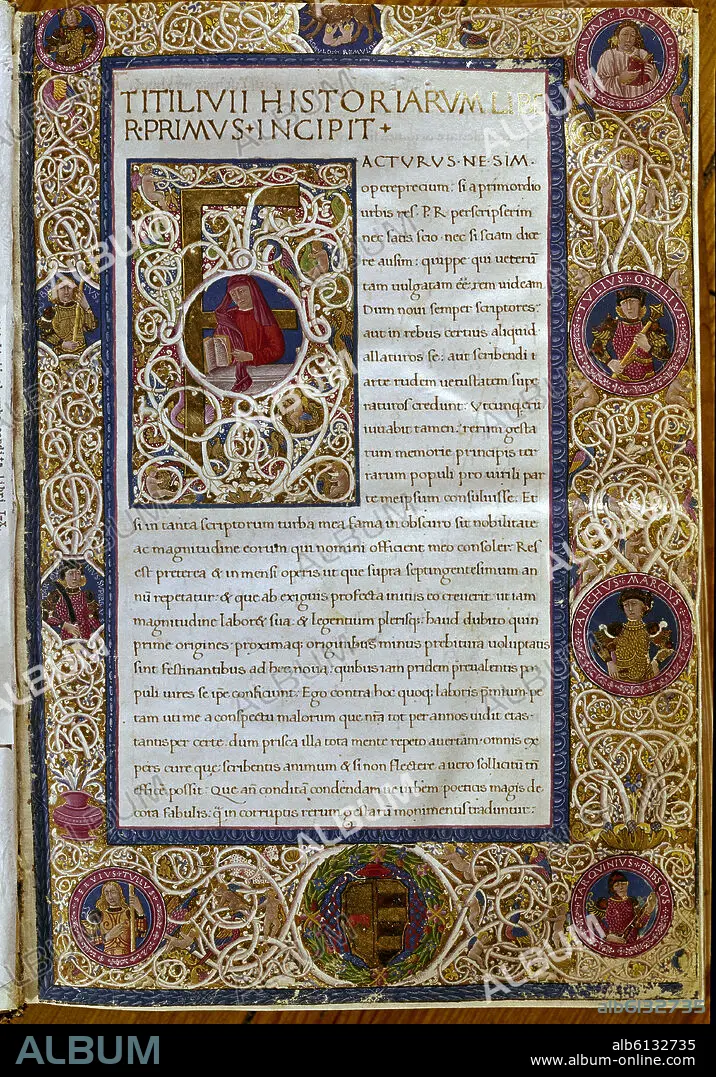 NVMA PONPILIO
TITI LIVII HISTORIARVM LIBE
R·PRIMVS+INCIPIT+
ACTVRVS·NE·SIM·
opereprecium: si a primordio
urbis res P.R perscripserim
nec satis scio: nec si sciam dice
re ausim: quippe qui ueterū
tam uulgatam eē rem uideam
Dum noui semper scriptores:
aut in rebus certius aliquid
allaturos se: aut scribendi
arte rudem uetustatem supe
raturos credunt: Vtcunq; erit
iuuabit tamen: rerum gesta
rum memorie principis ter
rarum populi pro uirili par
te me ipsum consuluisse. Et
si in tanta scriptorum turba mea fama in obscuro sit nobilitate
ac magnitudine eorum qui nomini officient meo consoler. Res
est preterea & in mensi operis ut que supra septingentesimum an
nū repetatur: & que ab exiguis profecta initiis eo creuerit: ut iam
magnitudine laboret sua: & legentium plerisq;: haud dubito quin
prime origines: proximaq; originibus minus prebitura uoluptatis
sint festinantibus ad hec noua: quibus iam pridem p̄ualentis po
puli uires se ip̄e conficiunt: Ego contra hoc quoq; laboris p̄mium pe
tam uti me a conspectu malorum que nr̄a tot per annos uidit etas:
tantisper certe: dum prisca illa tota mente repeto auertam: omnis ex
pers cure que scribentis animum & si non flectere a uero sollicitū tn̄
efficē possit: Que an̄ conditā condendamue urbem poeticis magis de
cora fabulis: q̄ in corruptis rerum gestarū monimentis traduntur:
TVLIVS OSTILIVS
ANCHVS MARCIVS
TARQVINIVS PRISCVS
ALBUM
alb6132735
ALBUM
alb6132735
www.album-online.com